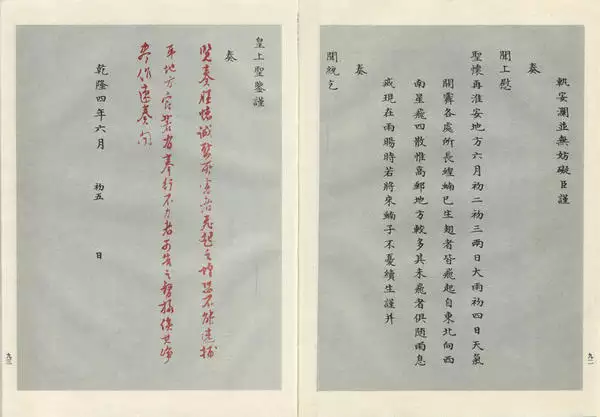 軌安瀾並無妨礙臣謹
奏
聞上慰
聖懷再淮安地方六月初二初三兩日大雨初四日天氣
開霽各處所長蝗蝻已生翅者皆飛起自東北向西
南星飛四散惟高郵地方較多其未飛者俱隨雨息
滅現在雨暘時若將來蝻子不憂續生謹并
奏
聞統乞
九二
皇上聖鑒謹
奏
覽奏所害者飛起之蝗恐不能捕
耳地方官若有奉行不力者可告之督撫俟其
參作速奏聞
乾隆四年六月 初五 日
九三